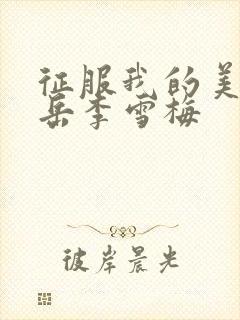 征服我的美
岳李雪梅
彼岸晨光